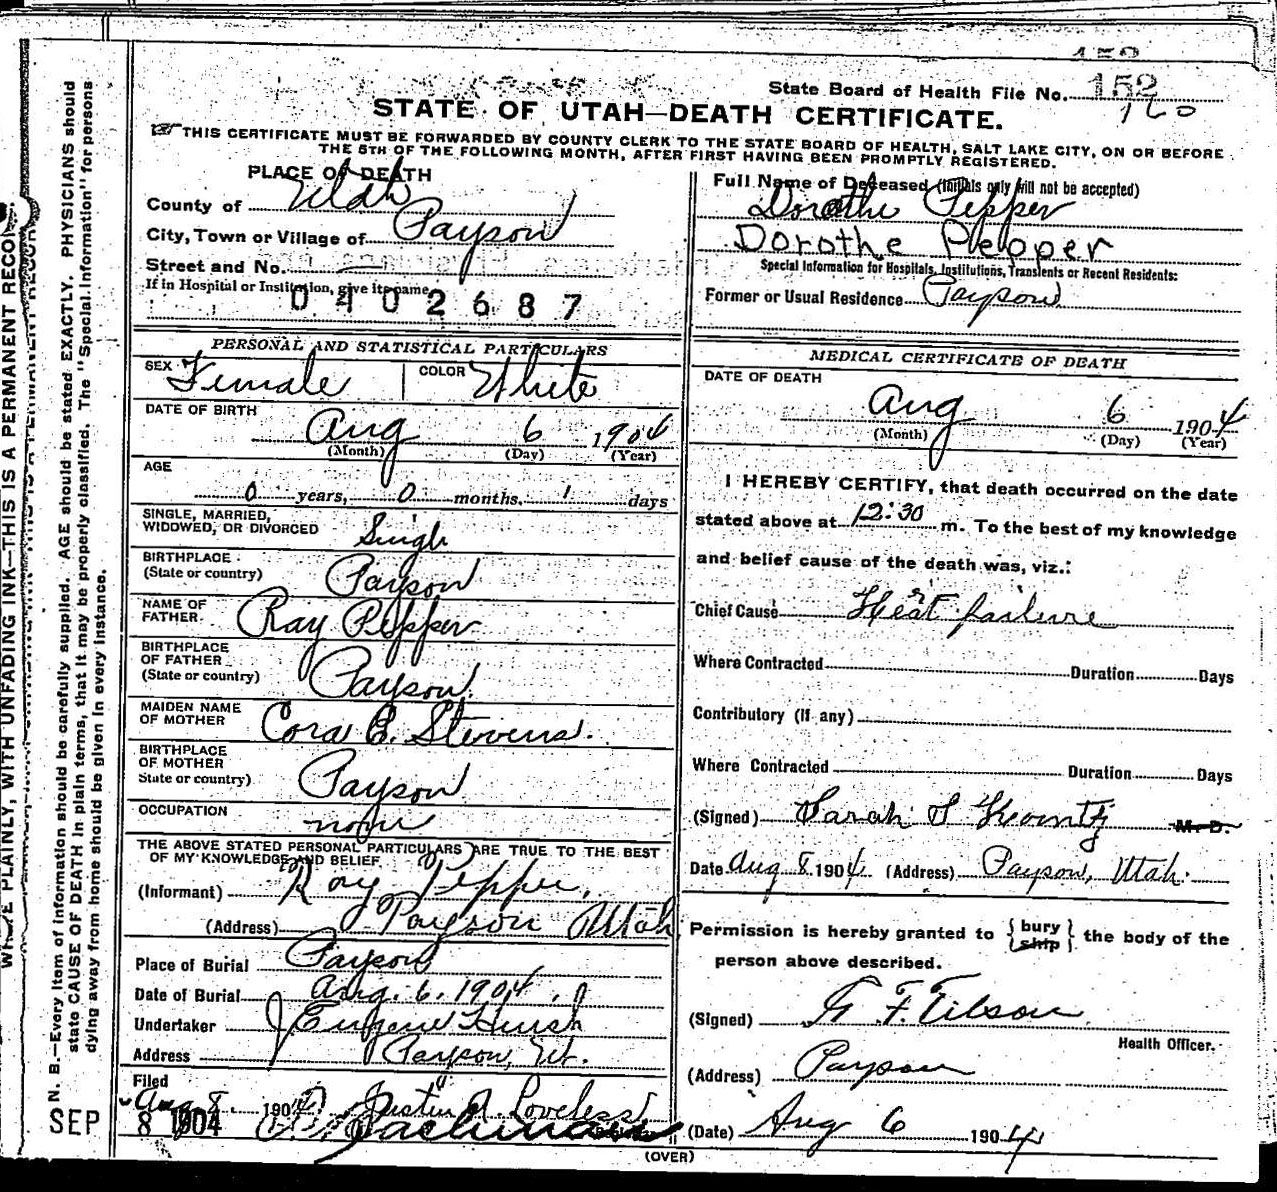 152
State Board of Health File No. 152
160
STATE OF UTAH—DEATH CERTIFICATE.
THIS CERTIFICATE MUST BE FORWARDED BY COUNTY CLERK TO THE STATE BOARD OF HEALTH, SALT LAKE CITY, ON OR BEFORE
THE 5TH OF THE FOLLOWING MONTH, AFTER FIRST HAVING BEEN PROMPTLY REGISTERED.
PLACE OF DEATH
County of Utah
City, Town or Village of Payson
Street and No. —
If in Hospital or Institution, give its name
0402687
Full Name of Deceased (Initials only will not be accepted)
Dorothe Pepper
Dorothe Pepper
Special Information for Hospitals, Institutions, Transients or Recent Residents:
Former or Usual Residence Payson
PERSONAL AND STATISTICAL PARTICULARS
SEX Female COLOR White
DATE OF BIRTH
Aug 6 1904
(Month) (Day) (Year)
AGE
0 years, 0 months, 1 days
SINGLE, MARRIED,
WIDOWED, OR DIVORCED Singl
BIRTHPLACE
(State or country) Payson
NAME OF
FATHER Ray Pepper
BIRTHPLACE
OF FATHER
(State or country) Payson
MAIDEN NAME
OF MOTHER Cora E. Stevens.
BIRTHPLACE
OF MOTHER
State or country) Payson
OCCUPATION
none
THE ABOVE STATED PERSONAL PARTICULARS ARE TRUE TO THE BEST
OF MY KNOWLEDGE AND BELIEF
(Informant) Roy Pepper,
(Address) Payson Utah
Place of Burial Payson
Date of Burial Aug. 6. 1904.
Undertaker J Eugene Huish
Address Payson, Ut.
Filed
Aug 8 1904 Justin A Loveless
SEP 8 1904
MEDICAL CERTIFICATE OF DEATH
DATE OF DEATH
Aug 6 1904
(Month) (Day) (Year)
I HEREBY CERTIFY, that death occurred on the date
stated above at 12:30 m. To the best of my knowledge
and belief cause of the death was, viz.:
Chief Cause Heart failure
Where Contracted Duration Days
Contributory (If any)
Where Contracted Duration Days
(Signed) Sarah S Kountz M. D.
Date Aug 8 1904 (Address) Payson, Utah.
Permission is hereby granted to {bury ship} the body of the
person above described.
(Signed) F. Tilson
Health Officer.
(Address) Payson
(Date) Aug 6 1904
(OVER)
N. B.—Every item of information should be carefully supplied. AGE should be stated EXACTLY. PHYSICIANS should
state CAUSE OF DEATH in plain terms, that it may be properly classified. The "Special Information" for persons
dying away from home should be given in every instance.
PLAINLY, WITH UNFADING INK—THIS IS A PERMANENT RECORD